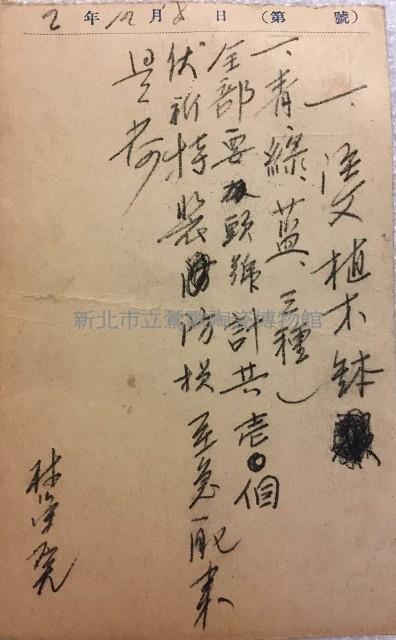 2年12月8日(第　號)
一、深文植木鉢
一、青、綠、藍、三種
全部要頭號計共壱0個
伏祈特裝防損至急配來
是荷
林
新北市立鶯歌陶瓷博物館